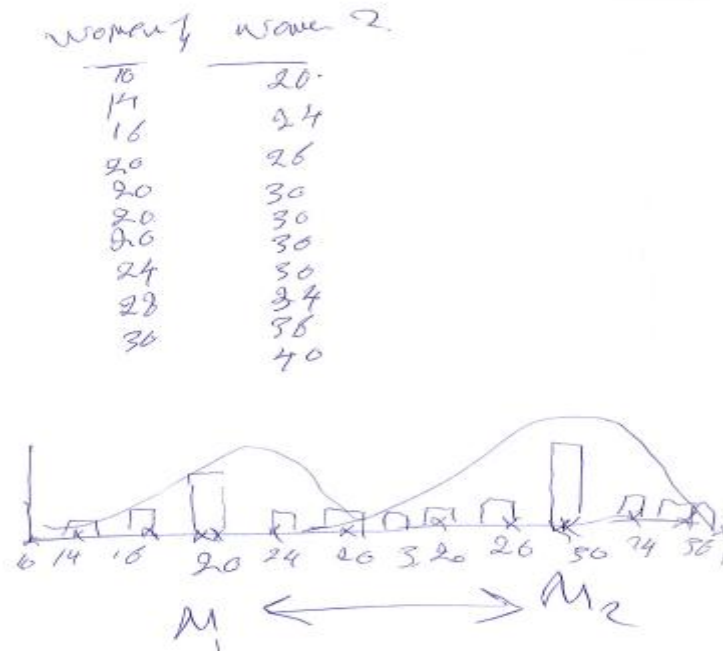 Women 1 Women 2
10 20
14 24
16 26
20 30
20 30
20 30
20 30
24 34
28 36
30 40
10 14 16 20 24 20 3 20 26 30 34 36
M1 M2